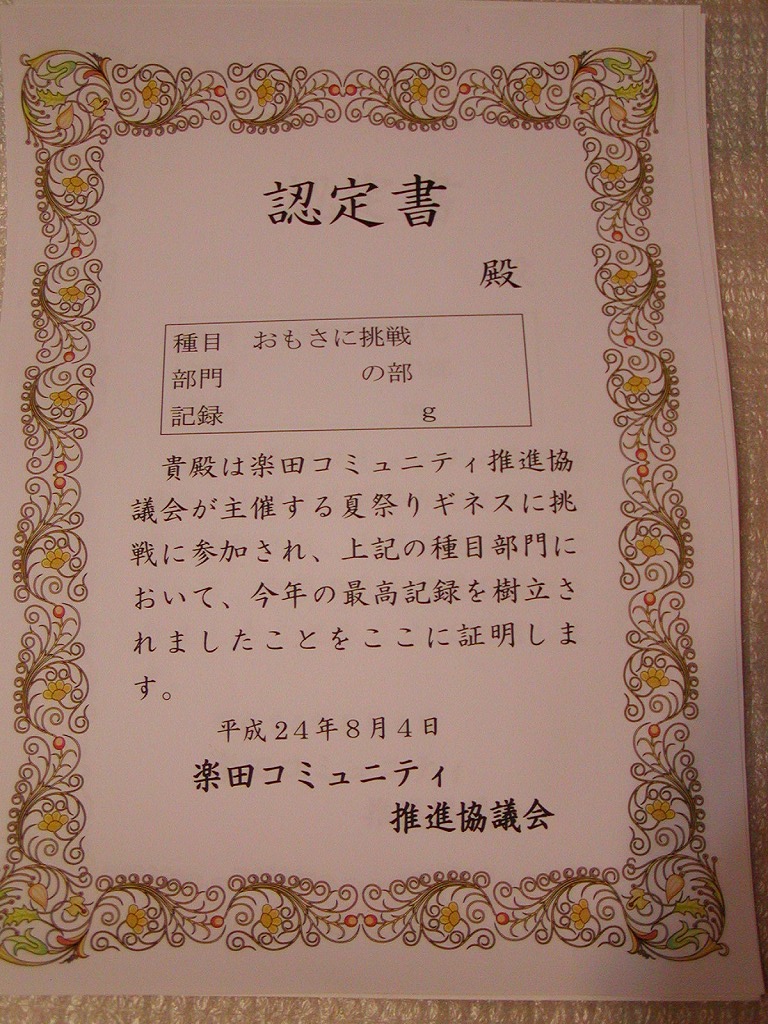 認定書
殿
種目　おもさに挑戦
部門　　　　　の部
記録　　　　　　　ｇ
貴殿は楽田コミュニティ推進協
議会が主催する夏祭りギネスに挑
戦に参加され、上記の種目部門に
おいて、今年の最高記録を樹立さ
れましたことをここに証明しま
す。
平成２４年８月４日
楽田コミュニティ
推進協議会